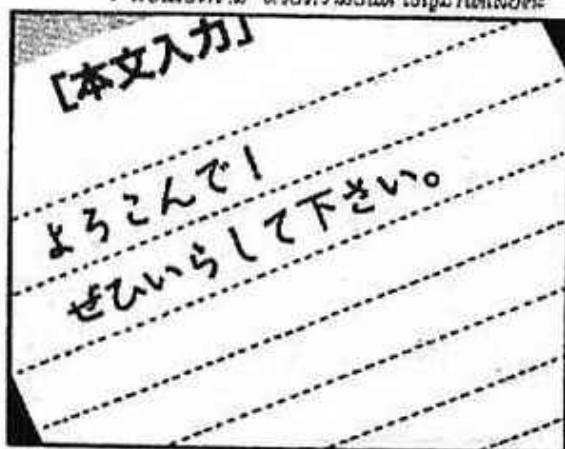 [本文入力]
よろこんで！
ぜひいらして下さい。